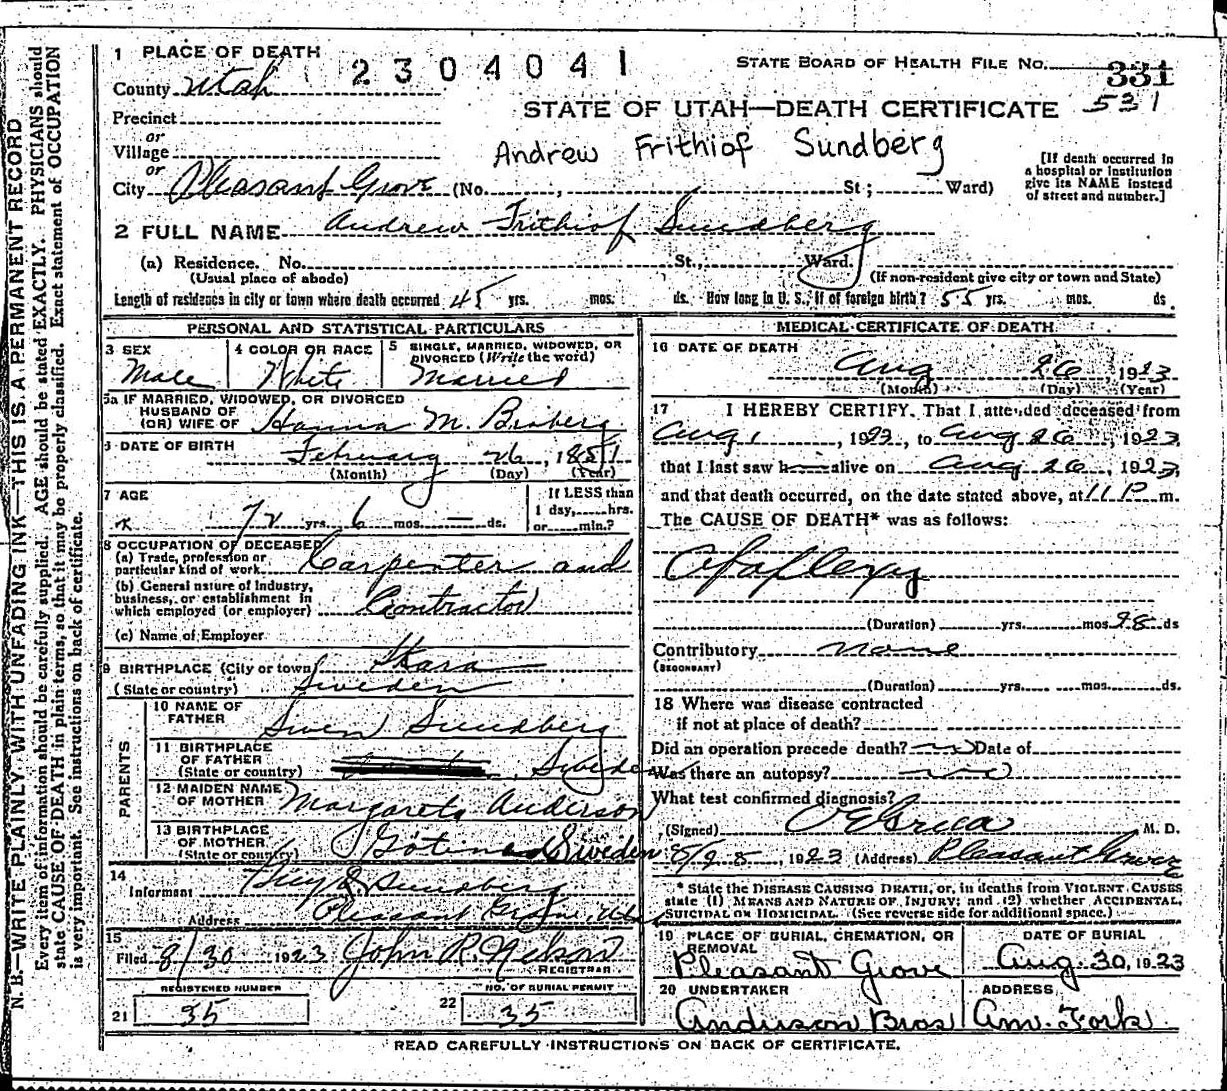 N. B.—WRITE PLAINLY WITH UNFADING INK—THIS IS A PERMANENT RECORD
Every item of information should be carefully supplied. AGE should be stated EXACTLY. PHYSICIANS should
state CAUSE OF DEATH in plain terms, so that it may be properly classified. Exact statement of OCCUPATION
is very important. See instructions on back of certificate.
1 PLACE OF DEATH
2304041
STATE BOARD OF HEALTH FILE NO. 331
County Utah
STATE OF UTAH—DEATH CERTIFICATE 531
Precinct
or
Village
Andrew Frithiof Sundberg
[If death occurred in
a hospital or institution
give its NAME instead
of street and number.]
or
City Pleasant Grove (No. , St ; Ward)
2 FULL NAME Andrew Frithiof Sundberg
(a) Residence. No. St., Ward.
(Usual place of abode) (If non-resident give city or town and State)
Length of residence in city or town where death occurred 45 yrs. mos. ds. How long in U. S., if of foreign birth? 55 yrs. mos. ds.
PERSONAL AND STATISTICAL PARTICULARS
3 SEX
Male
4 COLOR OR RACE
White
5 SINGLE, MARRIED, WIDOWED, OR
DIVORCED (Write the word)
Married
5a IF MARRIED, WIDOWED, OR DIVORCED
HUSBAND OF
(OR) WIFE OF Hanna M. Broberg
6 DATE OF BIRTH
February 26, 1851
(Month) (Day) (Year)
7 AGE
72 yrs. 6 mos. — ds.
If LESS than
1 day, hrs.
or min.?
8 OCCUPATION OF DECEASED
(a) Trade, profession or
particular kind of work Carpenter and
(b) General nature of industry,
business, or establishment in
which employed (or employer) Contractor
(c) Name of Employer
9 BIRTHPLACE (City or town) Skara
(State or country) Sweden
PARENTS
10 NAME OF
FATHER Swen Sundberg
11 BIRTHPLACE
OF FATHER
(State or country) , Sweden
12 MAIDEN NAME
OF MOTHER Margareta Anderson
13 BIRTHPLACE
OF MOTHER
(State or country) Sweden
14
Informant Sundberg
Address Pleasant Grove, Utah
15
Filed 8/30 1923 John R. Nelson
REGISTRAR
REGISTERED NUMBER
21 35
NO. OF BURIAL PERMIT
22 35
MEDICAL CERTIFICATE OF DEATH
16 DATE OF DEATH
Aug 26 1923
(Month) (Day) (Year)
17 I HEREBY CERTIFY, That I attended deceased from
Aug 1, 1923, to Aug 26, 1923,
that I last saw h alive on Aug 26, 1923,
and that death occurred, on the date stated above, at 11 P m.
The CAUSE OF DEATH* was as follows:
Apoplexy
(Duration) yrs. mos. 28 ds
Contributory none
(SECONDARY)
(Duration) yrs. mos. ds.
18 Where was disease contracted
if not at place of death?
Did an operation precede death? no Date of
Was there an autopsy? no
What test confirmed diagnosis?
(Signed) M. D.
8/28, 1923 (Address) Pleasant Grove
* State the DISEASE CAUSING DEATH, or, in deaths from VIOLENT CAUSES
state (1) MEANS AND NATURE OF INJURY; and (2) whether ACCIDENTAL,
SUICIDAL OR HOMICIDAL. (See reverse side for additional space.)
19 PLACE OF BURIAL, CREMATION, OR
REMOVAL
Pleasant Grove
DATE OF BURIAL
Aug. 30, 1923
20 UNDERTAKER
Anderson Bros
ADDRESS
Am. Fork
READ CAREFULLY INSTRUCTIONS ON BACK OF CERTIFICATE.